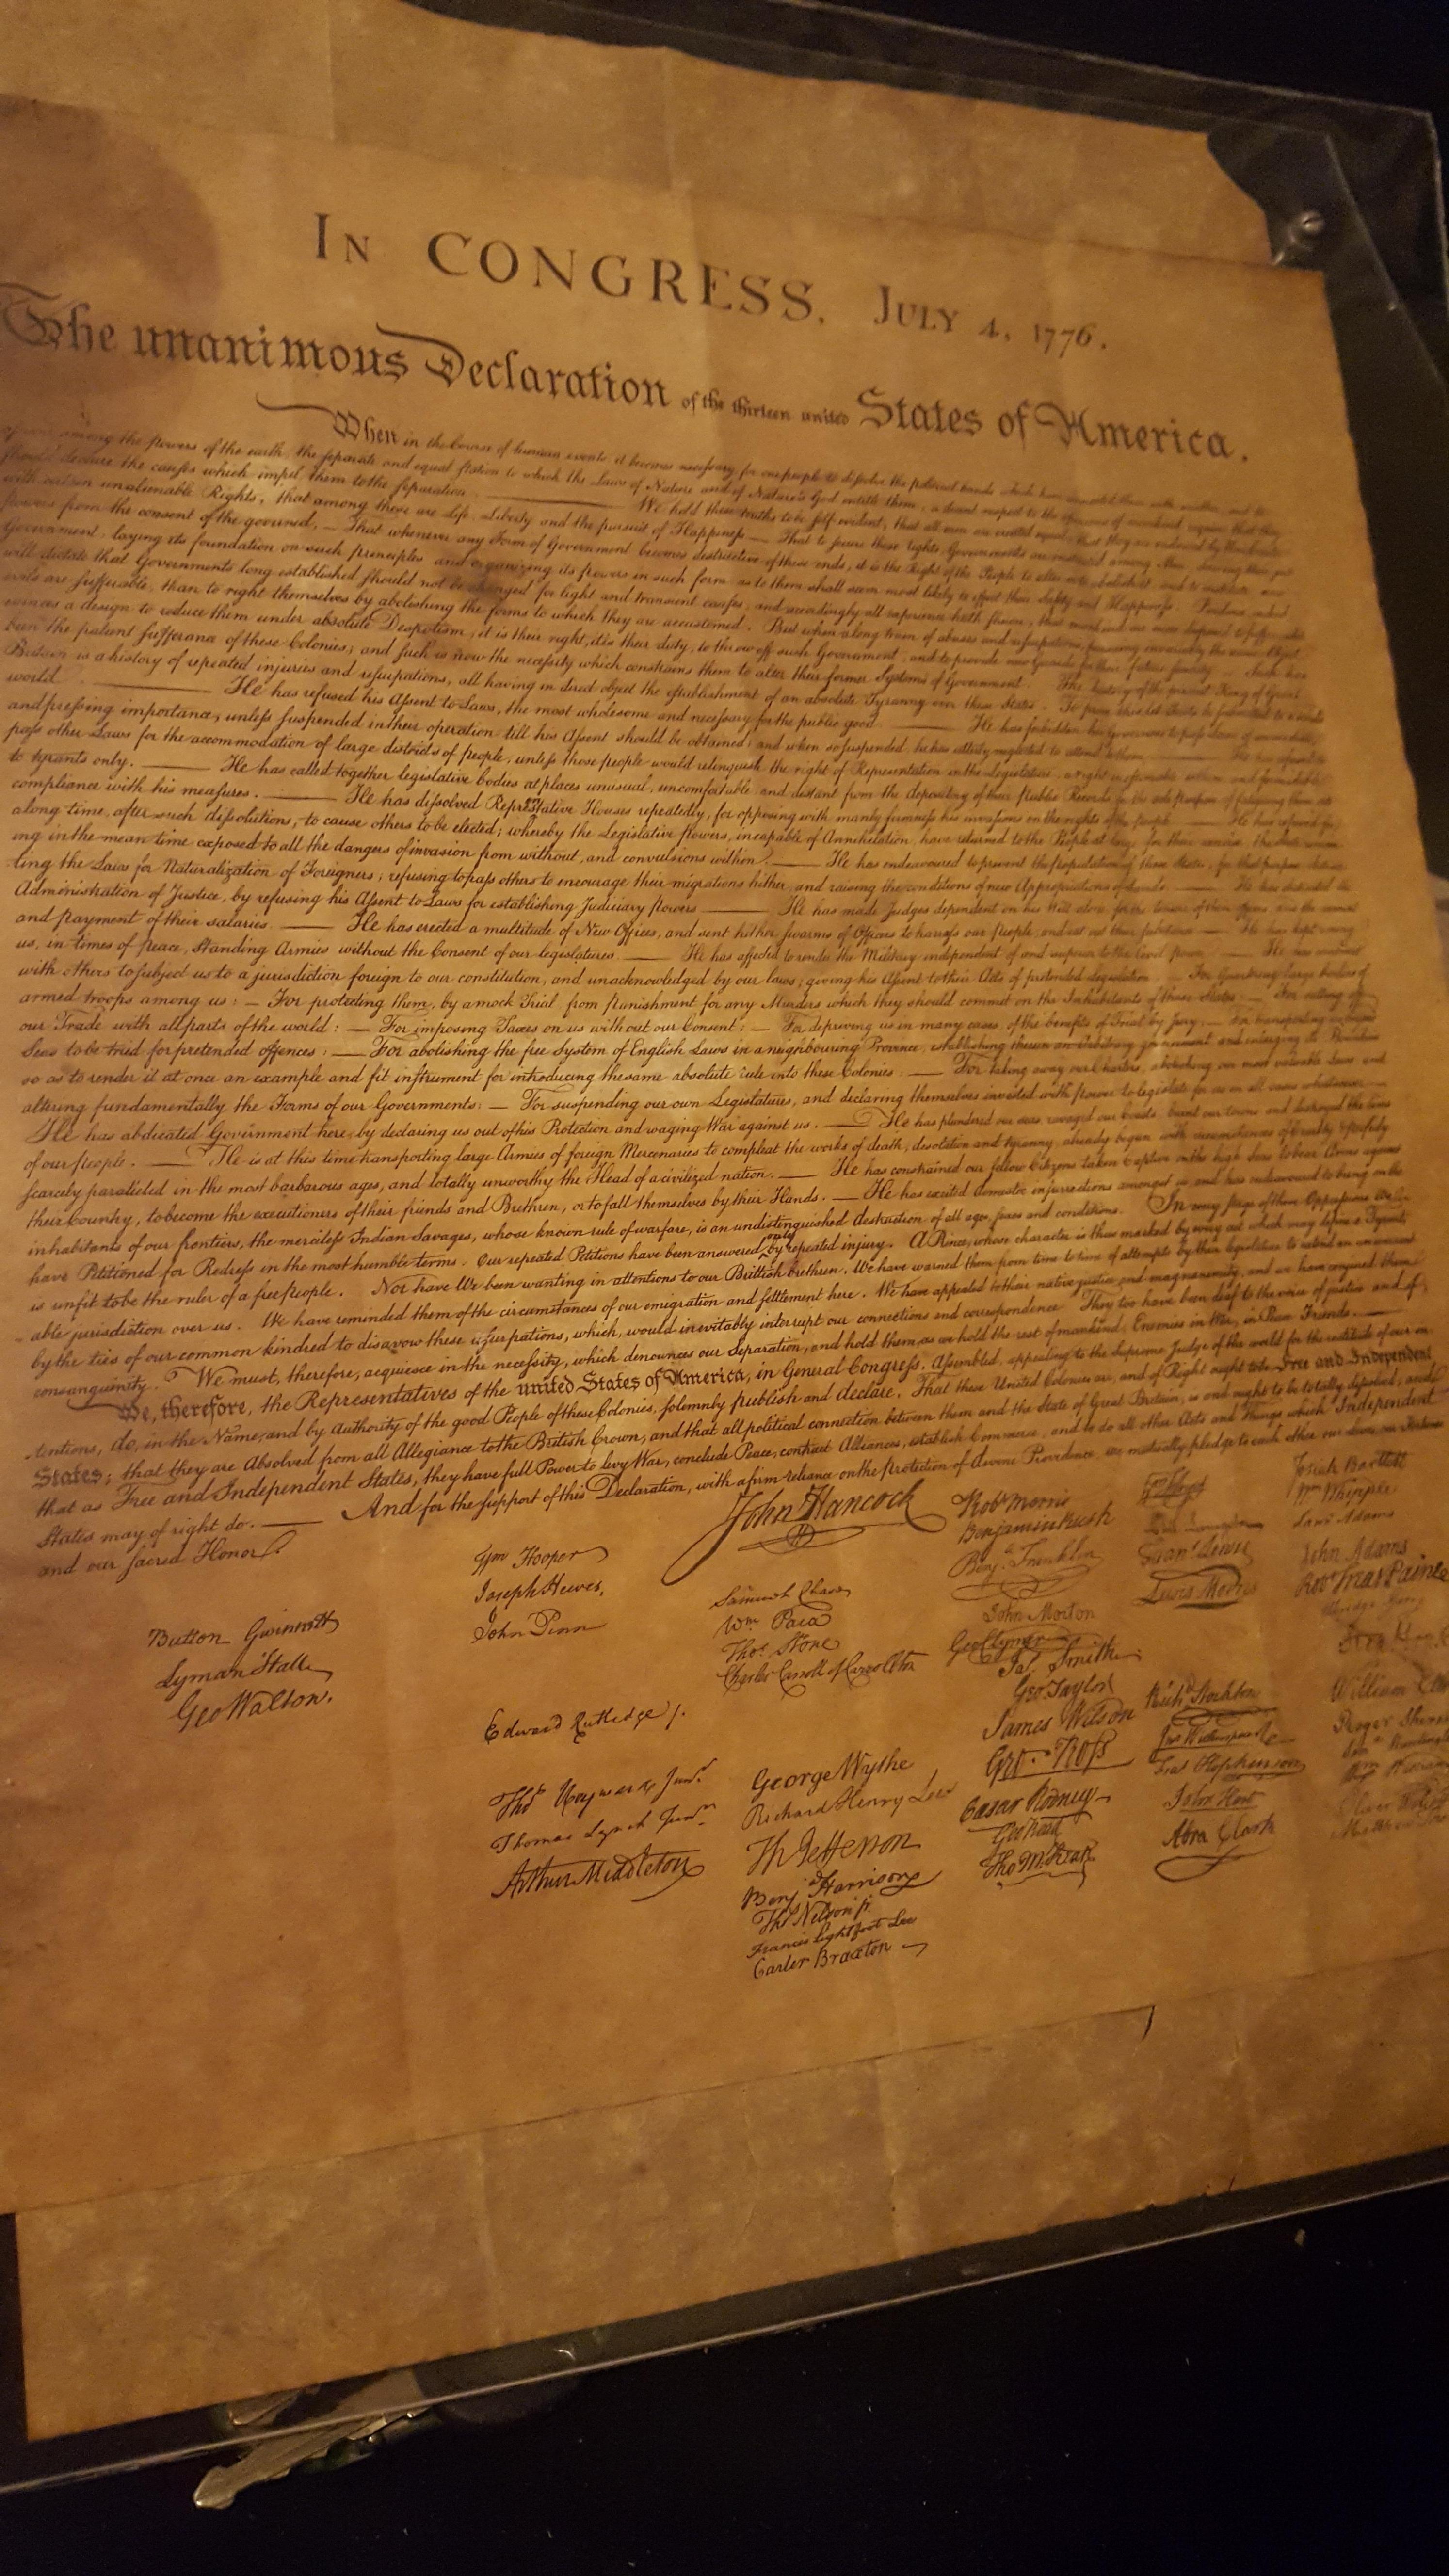 IN CONGRESS, JULY 4, 1776.
The unanimous Declaration of the thirteen united States of America.
When in the Course of human events it becomes necessary for one people to dissolve the political bands which have connected them with another, and to
among the powers of the earth, the separate and equal station to which the Laws of Nature and of Nature's God entitle them, a decent respect to the opinions of mankind requires that they
should declare the causes which impel them to the separation. —— We hold these truths to be self-evident, that all men are created equal, that they are endowed by their
with certain unalienable Rights, that among these are Life, Liberty and the pursuit of Happiness — That to secure these rights, Governments are instituted among Men, deriving their just
powers from the consent of the governed, — That whenever any Form of Government becomes destructive of these ends, it is the Right of the People to alter or to abolish it, and to institute new
Government, laying its foundation on such principles and organizing its powers in such form, as to them shall seem most likely to effect their Safety and Happiness. Prudence, indeed
will dictate that Governments long established should not be changed for light and transient causes; and accordingly all experience hath shewn, that mankind are more disposed to suffer, while
evils are sufferable, than to right themselves by abolishing the forms to which they are accustomed. But when a long train of abuses and usurpations, pursuing invariably the same Object
evinces a design to reduce them under absolute Despotism, it is their right, it is their duty, to throw off such Government, and to provide new Guards for their future security. — Such has
been the patient sufferance of these Colonies; and such is now the necessity which constrains them to alter their former Systems of Government. The history of the present King of Great
Britain is a history of repeated injuries and usurpations, all having in direct object the establishment of an absolute Tyranny over these States. To prove this let Facts be submitted to a candid
world. —— He has refused his Assent to Laws, the most wholesome and necessary for the public good. —— He has forbidden his Governors to pass Laws of immediate
and pressing importance, unless suspended in their operation till his Assent should be obtained; and when so suspended, he has utterly neglected to attend to them. —— He has refused to
pass other Laws for the accommodation of large districts of people, unless those people would relinquish the right of Representation in the Legislature, a right inestimable to them and formidable
to tyrants only. —— He has called together legislative bodies at places unusual, uncomfortable, and distant from the depository of their Public Records, for the sole purpose of fatiguing them into
compliance with his measures. —— He has dissolved Representative Houses repeatedly, for opposing with manly firmness his invasions on the rights of the people. —— He has refused for
a long time, after such dissolutions, to cause others to be elected; whereby the Legislative powers, incapable of Annihilation, have returned to the People at large for their exercise; the State remain-
ing in the mean time exposed to all the dangers of invasion from without, and convulsions within. —— He has endeavoured to prevent the population of these States; for that purpose obstruc-
ting the Laws for Naturalization of Foreigners; refusing to pass others to encourage their migrations hither, and raising the conditions of new Appropriations of Lands. —— He has obstructed the
Administration of Justice, by refusing his Assent to Laws for establishing Judiciary powers. —— He has made Judges dependent on his Will alone, for the tenure of their offices, and the amount
and payment of their salaries. —— He has erected a multitude of New Offices, and sent hither swarms of Officers to harrass our people, and eat out their substance. —— He has kept among
us, in times of peace, Standing Armies without the Consent of our legislatures. —— He has affected to render the Military independent of and superior to the Civil power. —— He has combined
with others to subject us to a jurisdiction foreign to our constitution, and unacknowledged by our laws; giving his Assent to their Acts of pretended Legislation: — For Quartering large bodies of
armed troops among us: — For protecting them, by a mock Trial, from punishment for any Murders which they should commit on the Inhabitants of these States: — For cutting off
our Trade with all parts of the world: — For imposing Taxes on us without our Consent: — For depriving us in many cases, of the benefits of Trial by Jury: — For transporting us beyond
Seas to be tried for pretended offences: — For abolishing the free System of English Laws in a neighbouring Province, establishing therein an Arbitrary government, and enlarging its Boundaries
so as to render it at once an example and fit instrument for introducing the same absolute rule into these Colonies: — For taking away our Charters, abolishing our most valuable Laws and
altering fundamentally the Forms of our Governments: — For suspending our own Legislatures, and declaring themselves invested with power to legislate for us in all cases whatsoever. —
He has abdicated Government here, by declaring us out of his Protection and waging War against us. —— He has plundered our seas, ravaged our Coasts, burnt our towns, and destroyed the lives
of our people. —— He is at this time transporting large Armies of foreign Mercenaries to compleat the works of death, desolation and tyranny, already begun with circumstances of Cruelty & perfidy
scarcely paralleled in the most barbarous ages, and totally unworthy the Head of a civilized nation. —— He has constrained our fellow Citizens taken Captive on the high Seas to bear Arms against
their Country, to become the executioners of their friends and Brethren, or to fall themselves by their Hands. —— He has excited domestic insurrections amongst us, and has endeavoured to bring on the
inhabitants of our frontiers, the merciless Indian Savages, whose known rule of warfare, is an undistinguished destruction of all ages, sexes and conditions. In every stage of these Oppressions We
have Petitioned for Redress in the most humble terms: Our repeated Petitions have been answered only by repeated injury. A Prince, whose character is thus marked by every act which may define a Tyrant,
is unfit to be the ruler of a free people. Nor have We been wanting in attentions to our Brittish brethren. We have warned them from time to time of attempts by their legislature to extend an unwarrant-
able jurisdiction over us. We have reminded them of the circumstances of our emigration and settlement here. We have appealed to their native justice and magnanimity, and we have conjured them
by the ties of our common kindred to disavow these usurpations, which, would inevitably interrupt our connections and correspondence. They too have been deaf to the voice of justice and of
consanguinity. We must, therefore, acquiesce in the necessity, which denounces our Separation, and hold them, as we hold the rest of mankind, Enemies in War, in Peace Friends. ——
We, therefore, the Representatives of the united States of America, in General Congress, Assembled, appealing to the Supreme Judge of the world for the rectitude of our in-
tentions, do, in the Name, and by Authority of the good People of these Colonies, solemnly publish and declare, That these United Colonies are, and of Right ought to be Free and Independent
States; that they are Absolved from all Allegiance to the British Crown, and that all political connection between them and the State of Great Britain, is and ought to be totally dissolved; and
that as Free and Independent States, they have full Power to levy War, conclude Peace, contract Alliances, establish Commerce, and to do all other Acts and Things which Independent
States may of right do. —— And for the support of this Declaration, with a firm reliance on the protection of divine Providence, we mutually pledge to each other our Lives, our Fortunes
and our sacred Honor.
Button Gwinnett
Lyman Hall
Geo Walton.
Wm Hooper
Joseph Hewes,
John Penn
Edward Rutledge /.
Thos Heyward Junr.
Thomas Lynch Junr.
Arthur Middleton
John Hancock
Samuel Chase
Wm. Paca
Thos. Stone
Charles Carroll of Carrollton
George Wythe
Richard Henry Lee
Th Jefferson
Benj Harrison
Thos Nelson jr.
Francis Lightfoot Lee
Carter Braxton
Robt Morris
Benjamin Rush
Benj. Franklin
John Morton
Geo Clymer
Jas. Smith
Geo. Taylor
James Wilson
Geo. Ross
Caesar Rodney
Geo Read
Tho M:Kean
Lewis Morris
Richd Stockton
Jno Witherspoon
Fras Hopkinson
John Hart
Abra Clark
Josiah Bartlett
Wm Whipple
Saml Adams
John Adams
Robt Treat Paine